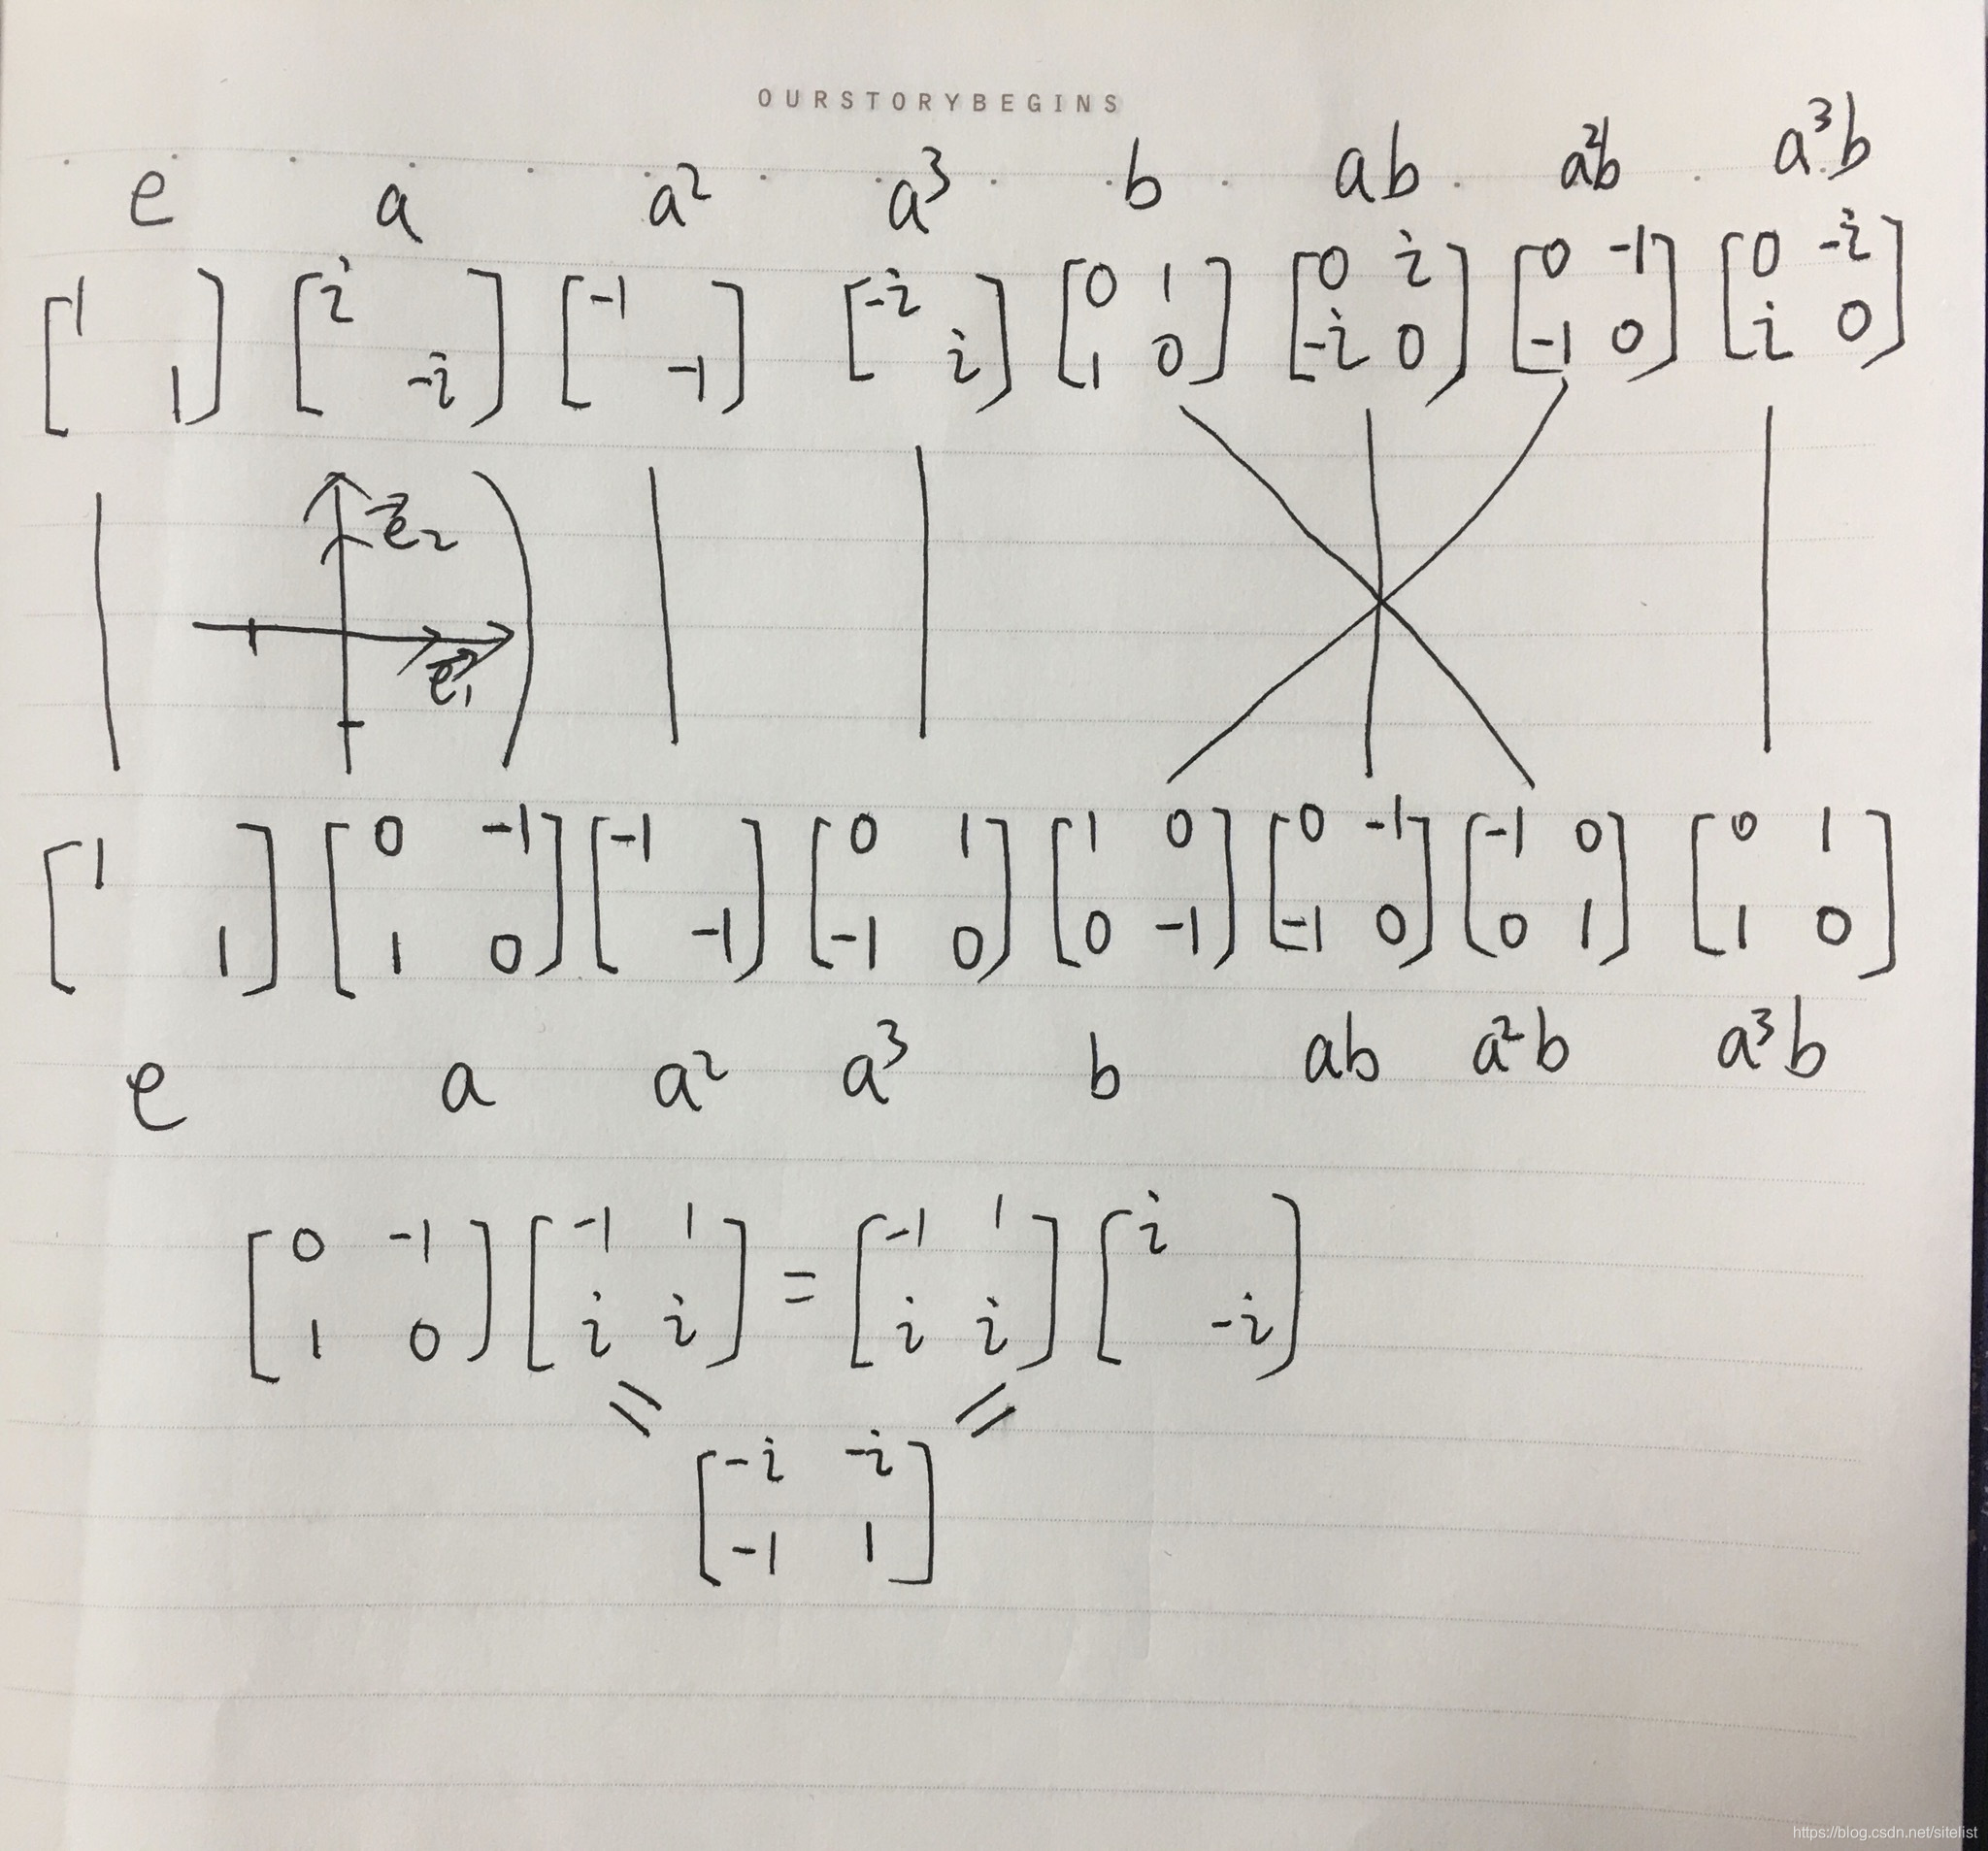 OURSTORYBEGINS
e a a² a³ b ab a²b a³b
[1 ; 1] [i ; -i] [-1 ; -1] [-i ; i] [0 1; 1 0] [0 i; -i 0] [0 -1; -1 0] [0 -i; i 0]
e⃗₂
e⃗₁
[1 ; 1] [0 -1; 1 0] [-1 ; -1] [0 1; -1 0] [1 0; 0 -1] [0 -1; -1 0] [-1 0; 0 1] [0 1; 1 0]
e a a² a³ b ab a²b a³b
[0 -1; 1 0] [-1 1; i i] = [-1 1; i i] [i ; -i]
= =
[-i -i; -1 1]
https://blog.csdn.net/sitelist